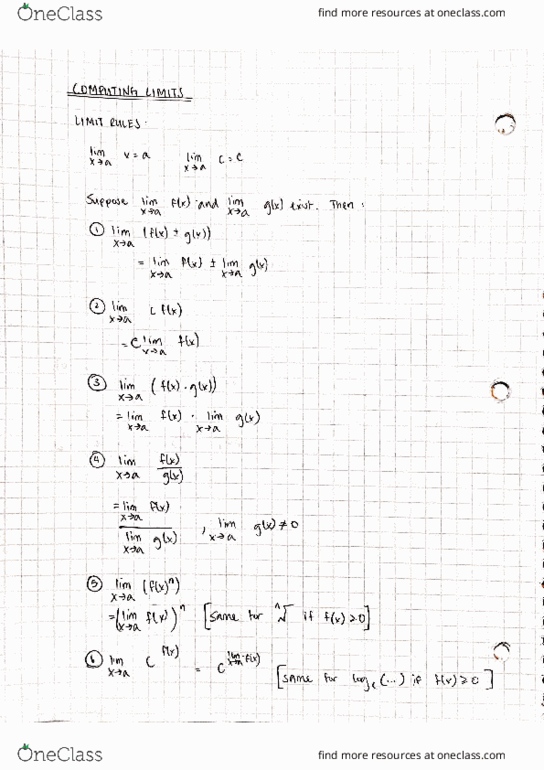 OneClass find more resources at oneclass.com
COMPUTING LIMITS
LIMIT RULES:
lim x→a x = a lim x→a c = c
Suppose lim x→a f(x) and lim x→a g(x) exist. Then:
① lim x→a (f(x) ± g(x))
= lim x→a f(x) ± lim x→a g(x)
② lim x→a c f(x)
= c lim x→a f(x)
③ lim x→a (f(x) · g(x))
= lim x→a f(x) · lim x→a g(x)
④ lim x→a f(x)/g(x)
= lim x→a f(x) / lim x→a g(x) , lim x→a g(x) ≠ 0
⑤ lim x→a (f(x)^n)
= (lim x→a f(x))^n [same for ^n√ if f(x) ≥ 0]
⑥ lim x→a c^f(x) = c^lim x→a f(x) [same for log_c (...) if f(x) ≥ 0]
OneClass find more resources at oneclass.com